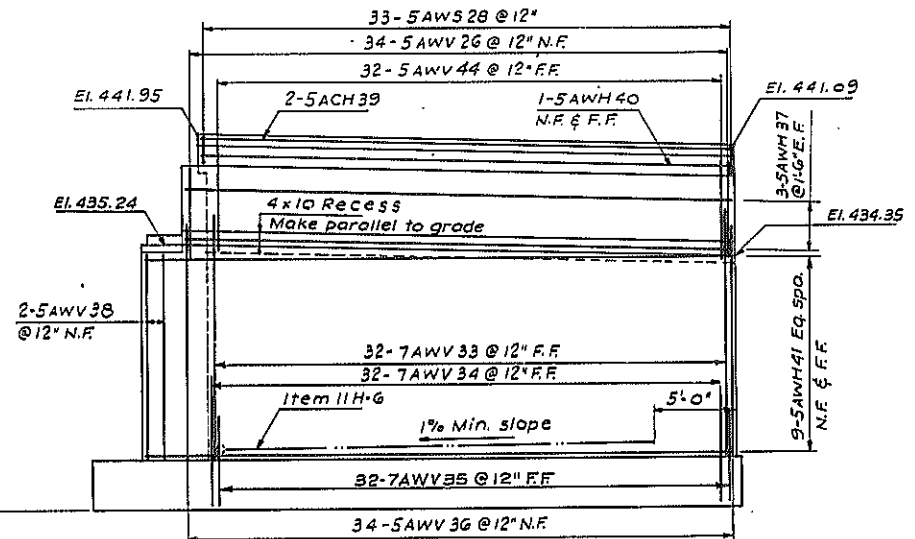 33-5AWS28 @ 12"
34-5AWV26 @ 12" N.F.
32-5AWV44 @ 12" F.F.
El. 441.95
2-5ACH39
1-5AWH40
N.F. & F.F.
El. 441.09
3-5AWH37
@ 1'-6" E.F.
El. 435.24
4 x 10 Recess
Make parallel to grade
El. 434.35
2-5AWV38
@ 12" N.F.
9-5AWH41 Eq. spa.
N.F. & F.F.
32-7AWV33 @ 12" F.F.
32-7AWV34 @ 12" F.F.
Item 11H-6
5'-0"
1% Min. slope
32-7AWV35 @ 12" F.F
34-5AWV36 @ 12" N.F.